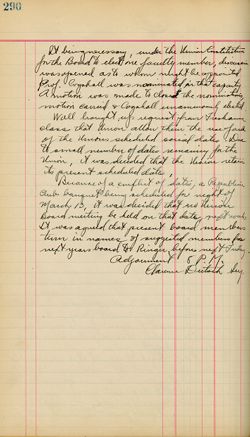 290
It being necessary, under the Union Constitution
for the Board to elect one faculty member, discussion
was opened as to whom might be appointed
Prof. Cogshall was nominated in that capacity
A motion was made to close the nominations
motion carried & Cogshall unanimously elected
Well brought up request from Freshman
class that Union allow them the use of one
of the Unions scheduled social dates. Due
to small number of dates remaining for the
Union, it was decided that the Union retain
its present scheduled dates,
Because of a conflict of dates, a Republican
Club banquet being scheduled for night of
March 13, it was decided that no Union
Board meeting be held on that date, next week.
It was agreed that present board members
turn in names of suggested members for
next years board to Ringer before next
Adjournment 5 P.M.
Clarence Secy